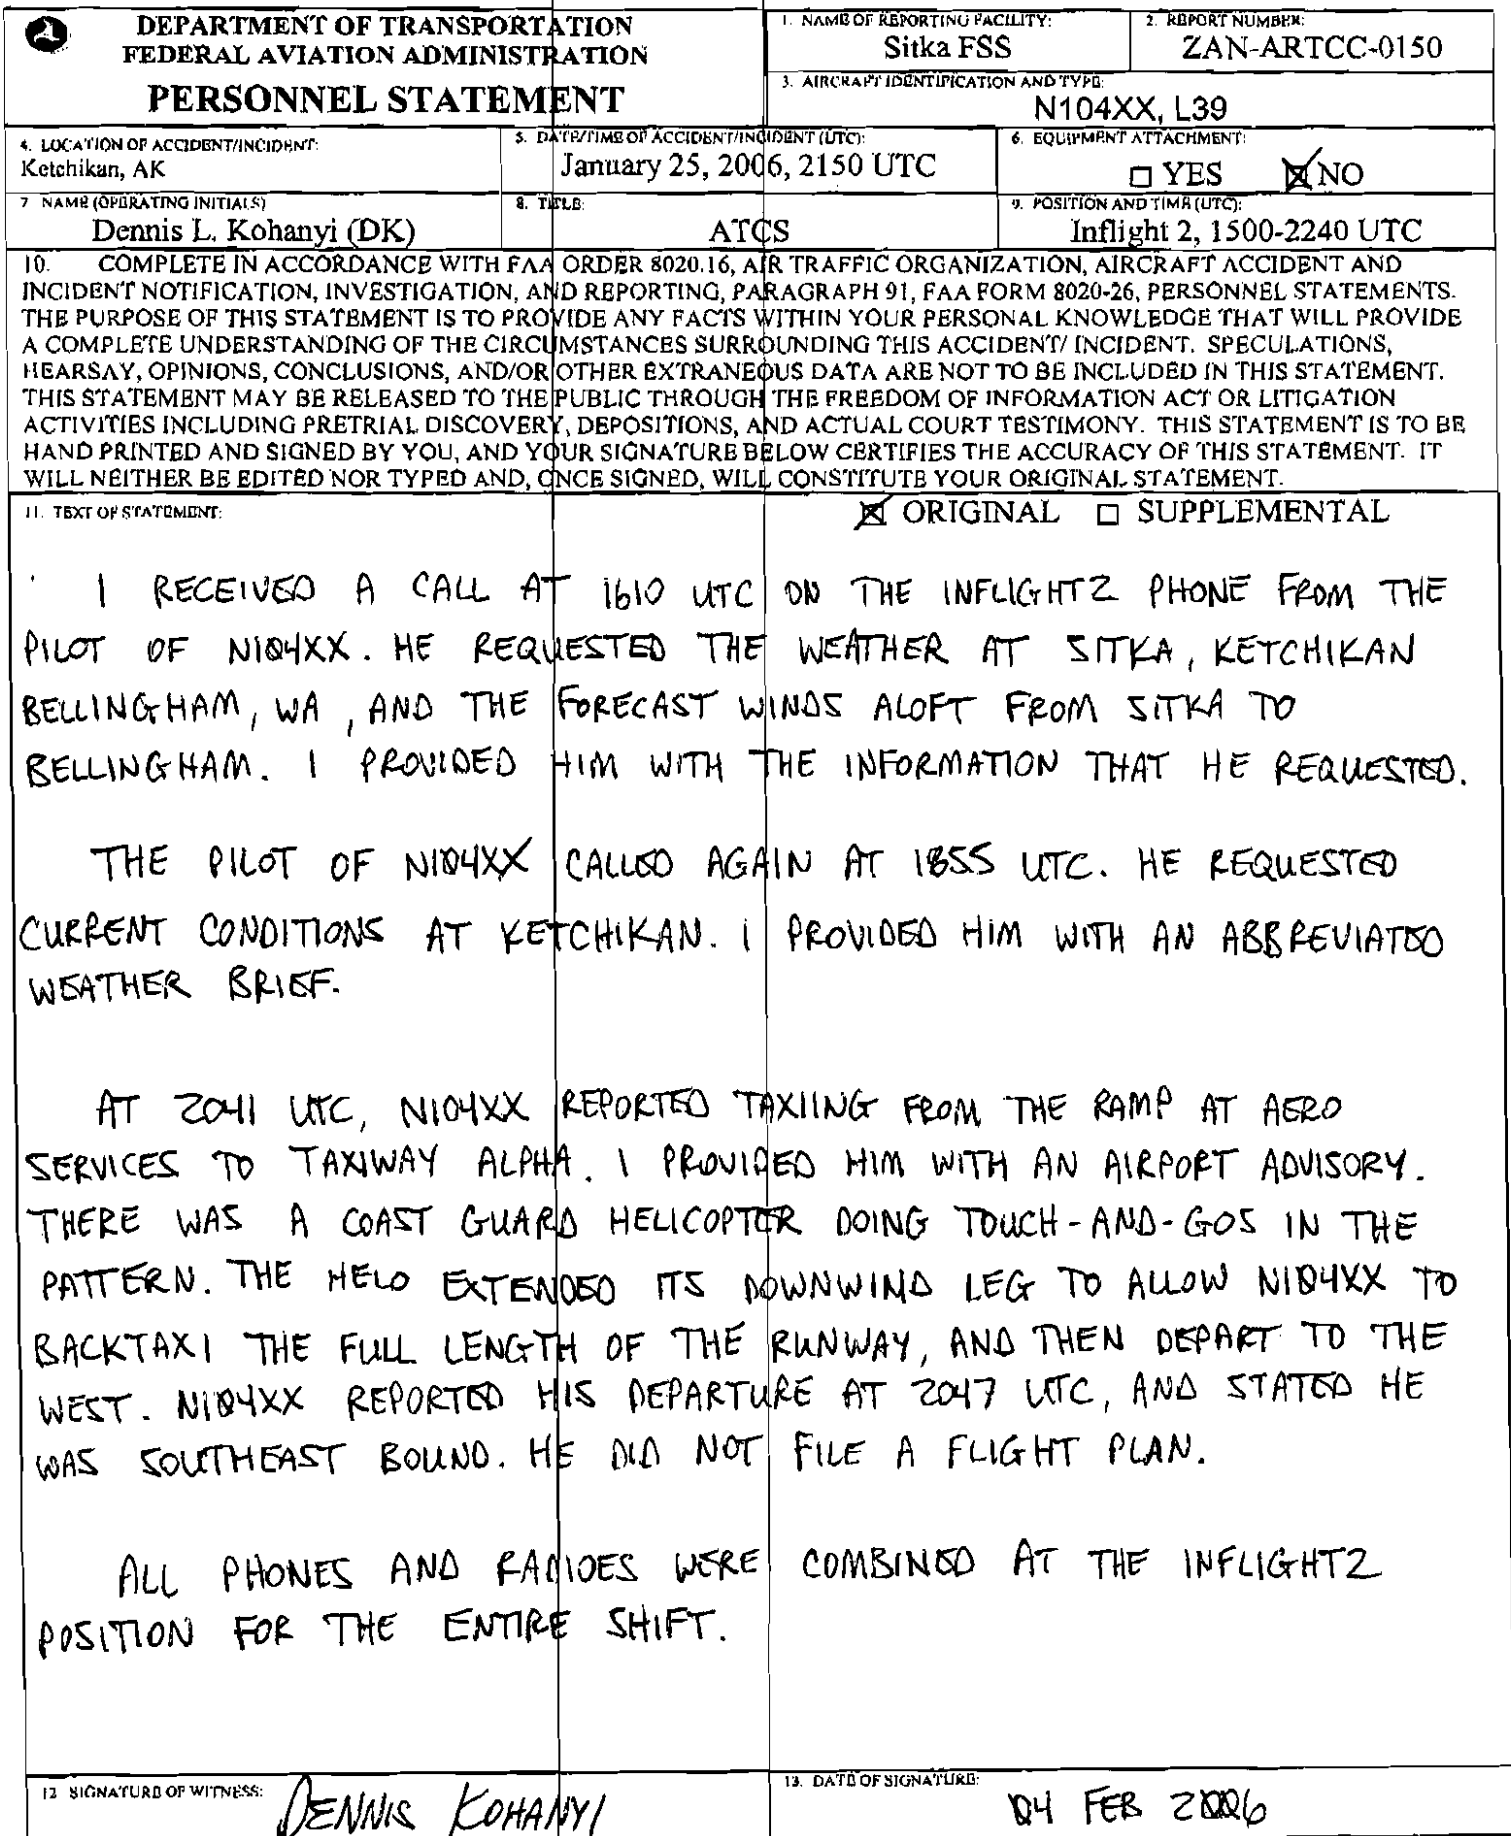 DEPARTMENT OF TRANSPORTATION
FEDERAL AVIATION ADMINISTRATION
PERSONNEL STATEMENT
1. NAME OF REPORTING FACILITY:
Sitka FSS
2. REPORT NUMBER:
ZAN-ARTCC-0150
3. AIRCRAFT IDENTIFICATION AND TYPE:
N104XX, L39
4. LOCATION OF ACCIDENT/INCIDENT:
Ketchikan, AK
5. DATE/TIME OF ACCIDENT/INCIDENT (UTC):
January 25, 2006, 2150 UTC
6. EQUIPMENT ATTACHMENT:
☐ YES ☒ NO
7 NAME (OPERATING INITIALS)
Dennis L. Kohanyi (DK)
8. TITLE:
ATCS
9. POSITION AND TIME (UTC):
Inflight 2, 1500-2240 UTC
10. COMPLETE IN ACCORDANCE WITH FAA ORDER 8020.16, AIR TRAFFIC ORGANIZATION, AIRCRAFT ACCIDENT AND
INCIDENT NOTIFICATION, INVESTIGATION, AND REPORTING, PARAGRAPH 91, FAA FORM 8020-26, PERSONNEL STATEMENTS.
THE PURPOSE OF THIS STATEMENT IS TO PROVIDE ANY FACTS WITHIN YOUR PERSONAL KNOWLEDGE THAT WILL PROVIDE
A COMPLETE UNDERSTANDING OF THE CIRCUMSTANCES SURROUNDING THIS ACCIDENT/ INCIDENT. SPECULATIONS,
HEARSAY, OPINIONS, CONCLUSIONS, AND/OR OTHER EXTRANEOUS DATA ARE NOT TO BE INCLUDED IN THIS STATEMENT.
THIS STATEMENT MAY BE RELEASED TO THE PUBLIC THROUGH THE FREEDOM OF INFORMATION ACT OR LITIGATION
ACTIVITIES INCLUDING PRETRIAL DISCOVERY, DEPOSITIONS, AND ACTUAL COURT TESTIMONY. THIS STATEMENT IS TO BE
HAND PRINTED AND SIGNED BY YOU, AND YOUR SIGNATURE BELOW CERTIFIES THE ACCURACY OF THIS STATEMENT. IT
WILL NEITHER BE EDITED NOR TYPED AND, ONCE SIGNED, WILL CONSTITUTE YOUR ORIGINAL STATEMENT.
11. TEXT OF STATEMENT:
☒ ORIGINAL ☐ SUPPLEMENTAL
I RECEIVED A CALL AT 1610 UTC ON THE INFLIGHT2 PHONE FROM THE
PILOT OF N104XX. HE REQUESTED THE WEATHER AT SITKA, KETCHIKAN
BELLINGHAM, WA, AND THE FORECAST WINDS ALOFT FROM SITKA TO
BELLINGHAM. I PROVIDED HIM WITH THE INFORMATION THAT HE REQUESTED.
THE PILOT OF N104XX CALLED AGAIN AT 1855 UTC. HE REQUESTED
CURRENT CONDITIONS AT KETCHIKAN. I PROVIDED HIM WITH AN ABBREVIATED
WEATHER BRIEF.
AT 2041 UTC, N104XX REPORTED TAXIING FROM THE RAMP AT AERO
SERVICES TO TAXIWAY ALPHA. I PROVIDED HIM WITH AN AIRPORT ADVISORY.
THERE WAS A COAST GUARD HELICOPTER DOING TOUCH-AND-GOS IN THE
PATTERN. THE HELO EXTENDED ITS DOWNWIND LEG TO ALLOW N104XX TO
BACKTAXI THE FULL LENGTH OF THE RUNWAY, AND THEN DEPART TO THE
WEST. N104XX REPORTED HIS DEPARTURE AT 2047 UTC, AND STATED HE
WAS SOUTHEAST BOUND. HE DID NOT FILE A FLIGHT PLAN.
ALL PHONES AND RADIOES WERE COMBINED AT THE INFLIGHT2
POSITION FOR THE ENTIRE SHIFT.
12 SIGNATURE OF WITNESS:
DENNIS KOHANYI
13. DATE OF SIGNATURE:
04 FEB 2006